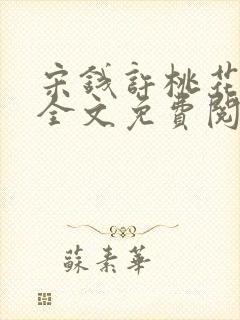 宋钱許桃花
全文免費閱
蘇素華